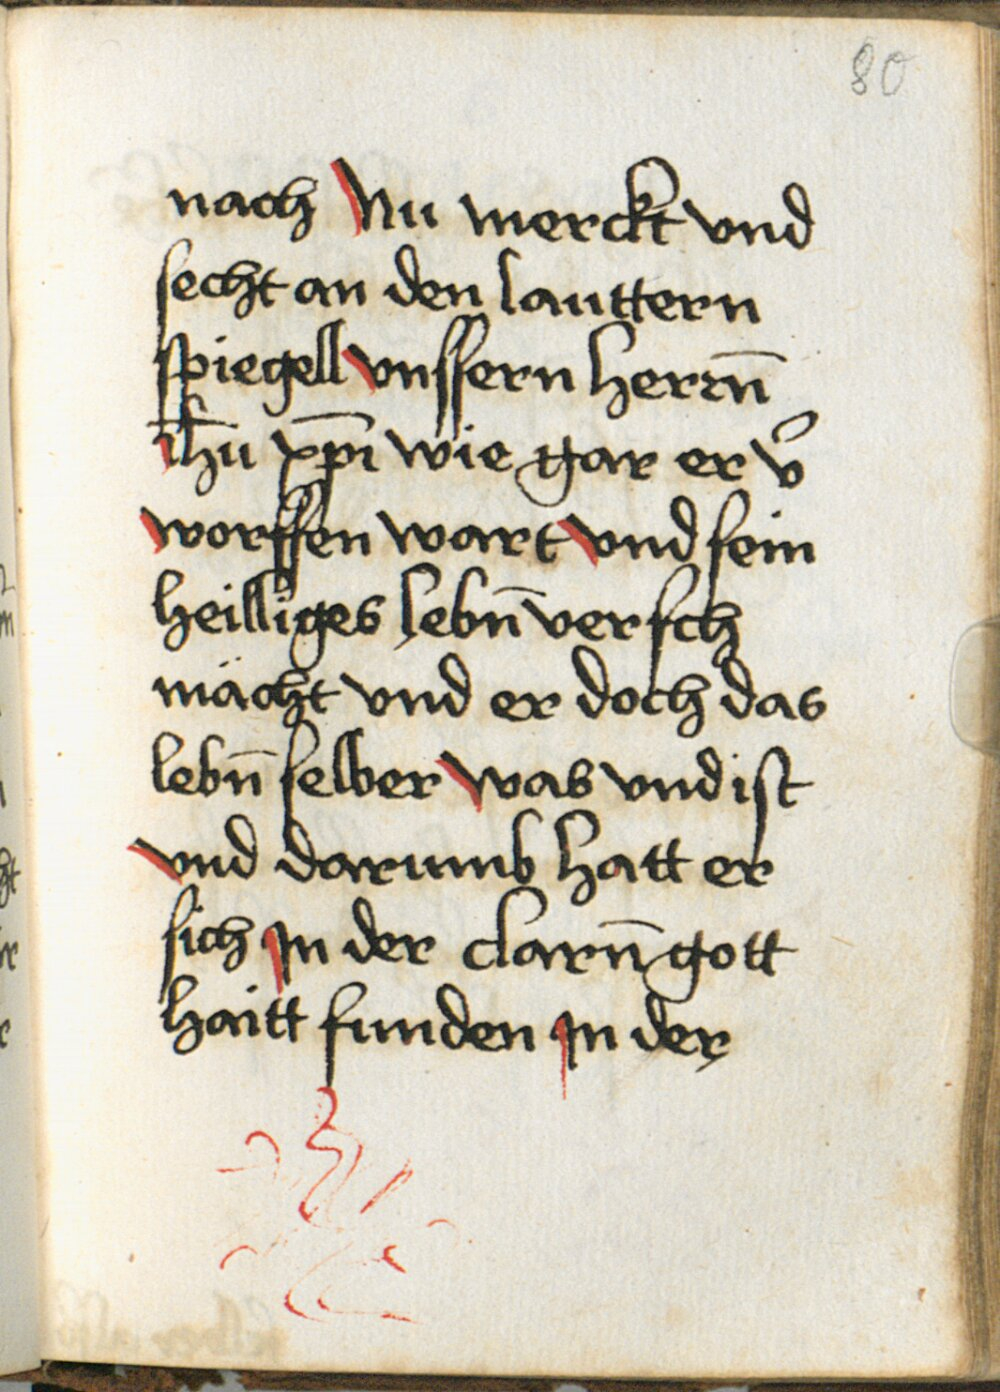 80
nach Nu merckt vnd
secht an den lauttern
spiegell vnssern herrn̄
ih̄u xp̄i wie gar er v̾
worffen wart vnd sein
heilliges lebn̄ versch
mächt vnd er doch das
lebn̄ selber was vnd ist
vnd darumb hatt er
sich In der clarn̄ gott
haitt funden In der